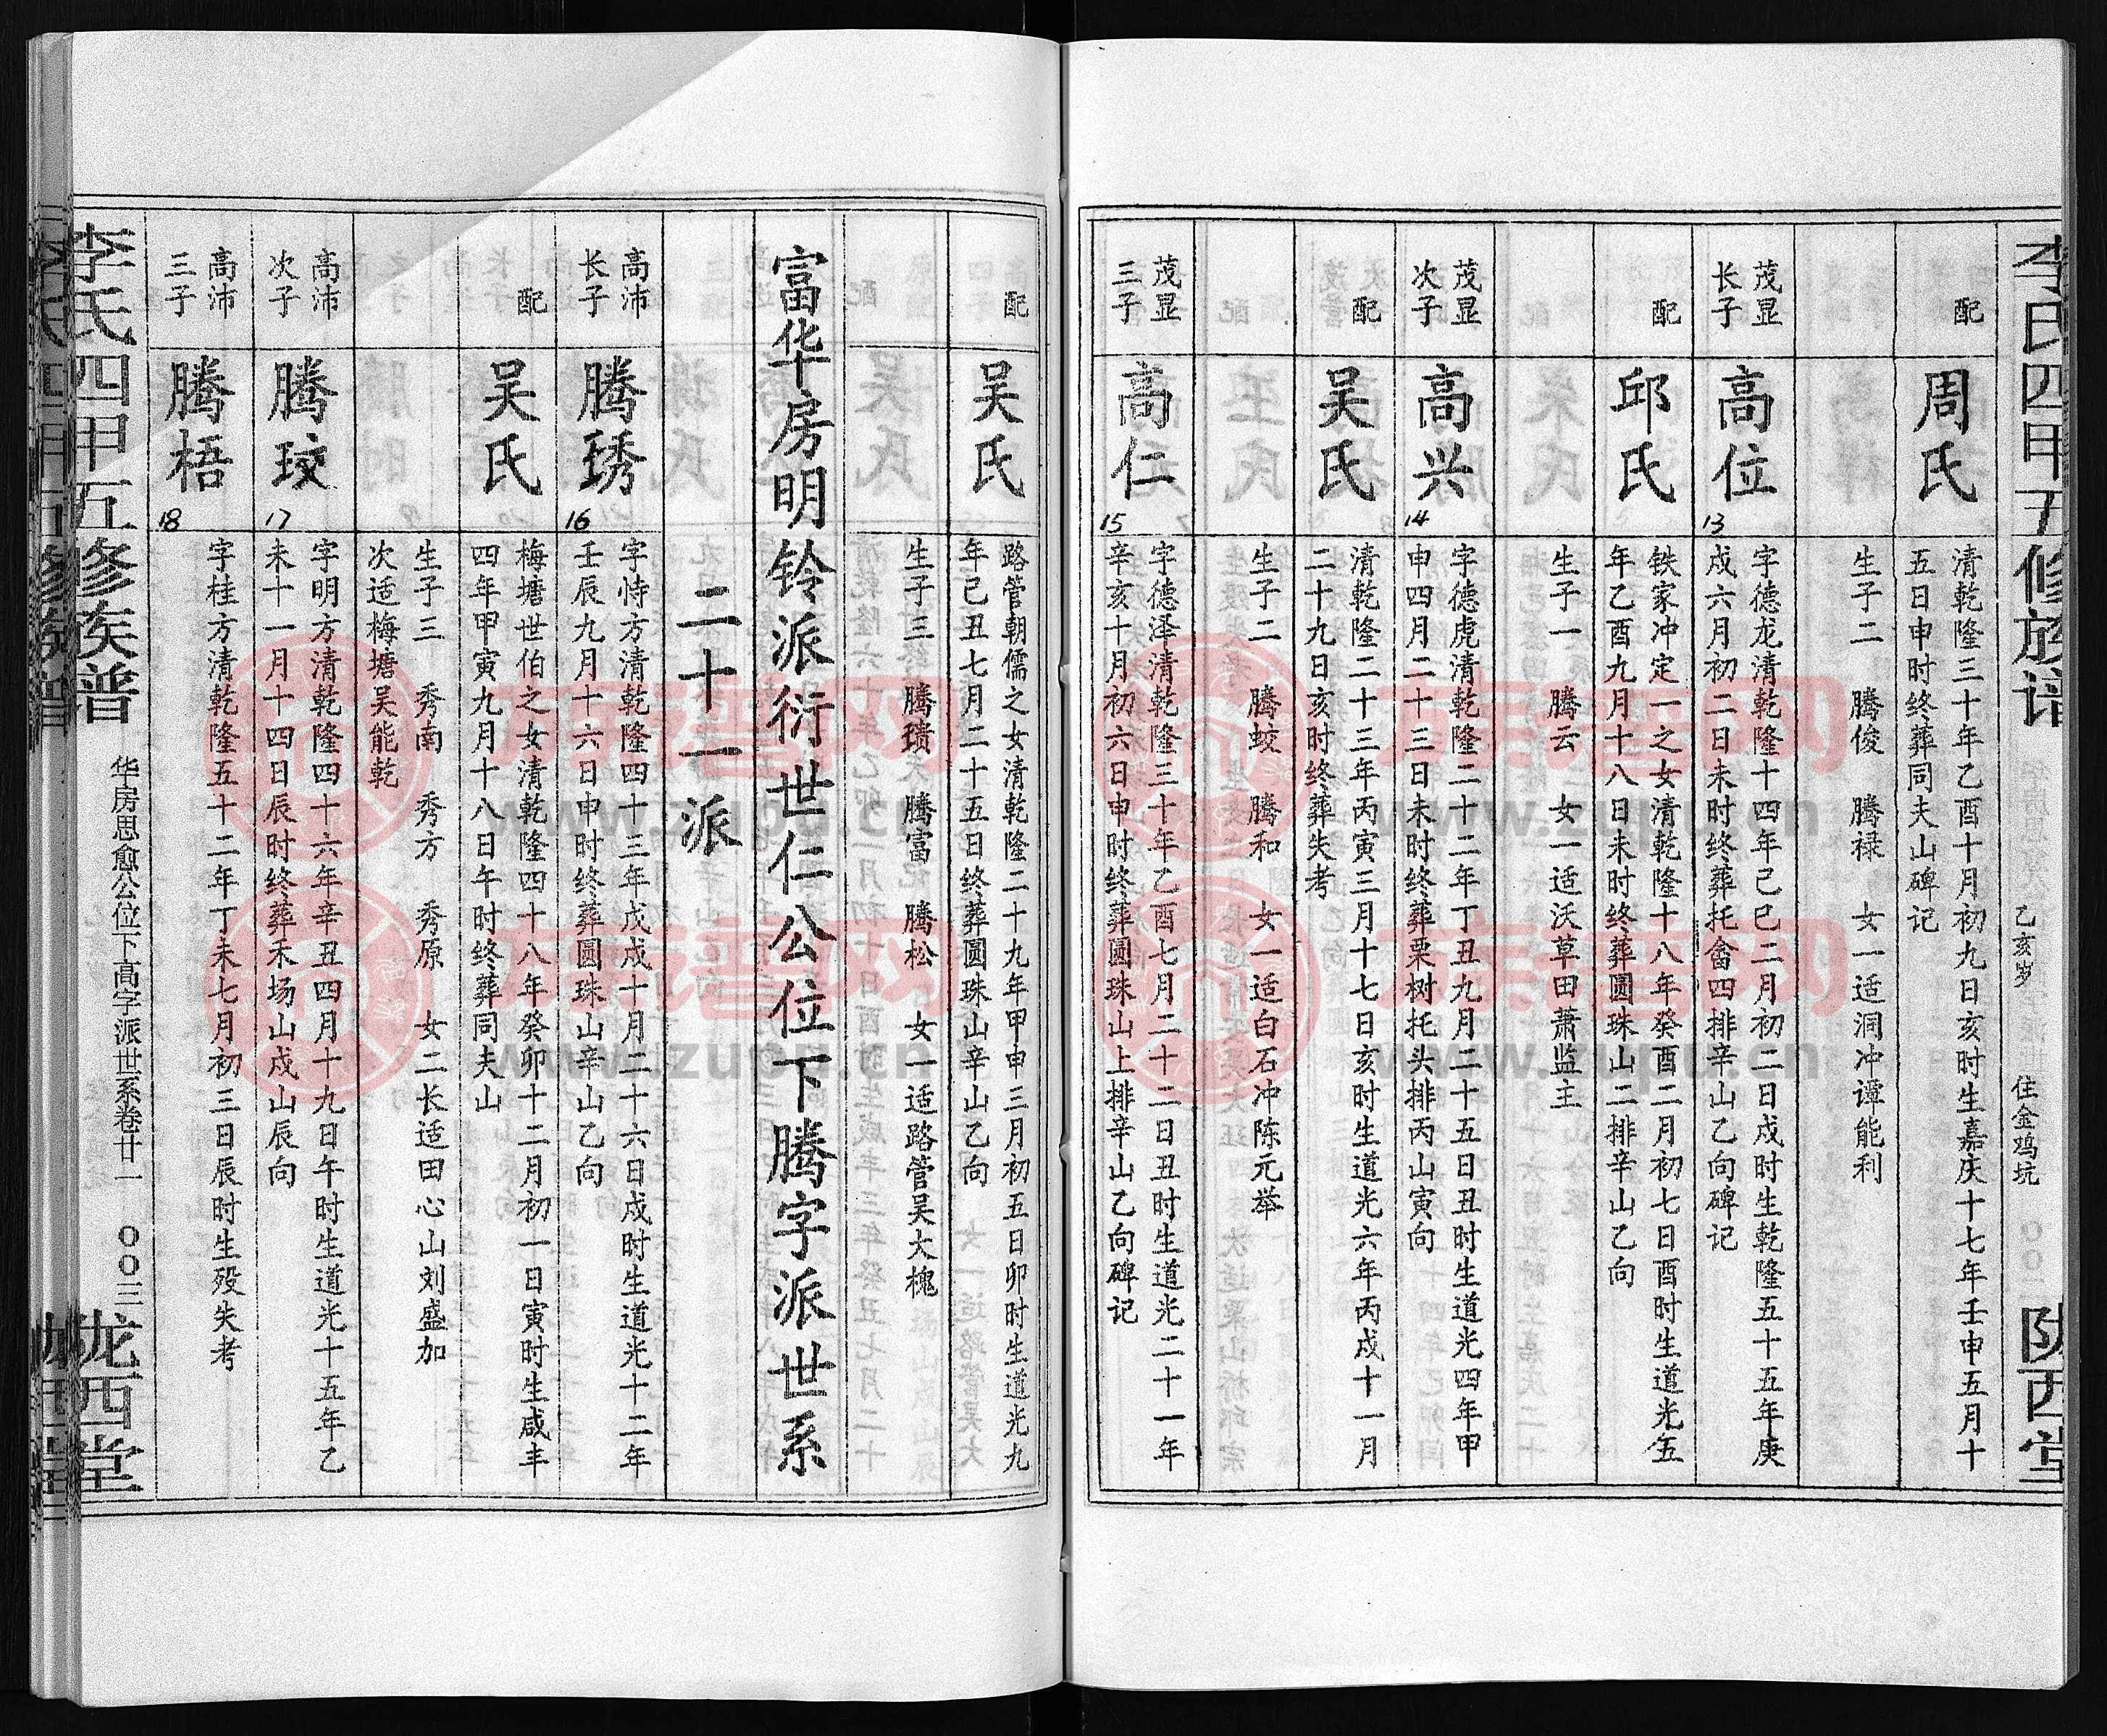 李氏四甲五修族谱
乙亥岁
住金鸡坑
陇西堂
配
周氏
清乾隆三十年乙酉十月初九日亥时生嘉庆十七年壬申五月十
五日申时终葬同夫山碑记
生子二 腾俊 腾禄 女一适洞冲谭能利
茂显
长子
高位
13
字德龙清乾隆十四年己巳二月初二日戌时生乾隆五十五年庚
戌六月初二日未时终葬托畲四排辛山乙向碑记
配
邱氏
铁家冲定一之女清乾隆十八年癸酉二月初七日酉时生道光五
年乙酉九月十八日未时终葬圆珠山二排辛山乙向
生子一 腾云 女一适沃草田萧监主
茂显
次子
高兴
14
字德虎清乾隆二十二年丁丑九月二十五日丑时生道光四年甲
申四月二十三日未时终葬栗树托头排丙山寅向
配
吴氏
清乾隆二十三年丙寅三月十七日亥时生道光六年丙戌十一月
二十九日亥时终葬失考
生子二 腾蛟 腾和 女一适白石冲陈元举
茂显
三子
高仁
15
字德泽清乾隆三十年乙酉七月二十二日丑时生道光二十一年
辛亥十月初六日申时终葬圆珠山上排辛山乙向碑记
配
吴氏
路管朝儒之女清乾隆二十九年甲申三月初五日卯时生道光九
年己丑七月二十五日终葬圆珠山辛山乙向
生子三 腾璝 腾富 腾松 女一适路管吴大槐
富华房明铃派衍世仁公位下腾字派世系
二十一派
高沛
长子
腾琇
16
字恃方清乾隆四十三年戊戌十月二十六日戌时生道光十二年
壬辰九月十六日申时终葬圆珠山辛山乙向
配
吴氏
梅塘世伯之女清乾隆四十八年癸卯十二月初一日寅时生咸丰
四年甲寅九月十八日午时终葬同夫山
生子三 秀南 秀方 秀原 女二长适田心山刘盛加
次适梅塘吴能乾
高沛
次子
腾玟
17
字明方清乾隆四十六年辛丑四月十九日午时生道光十五年乙
未十一月十四日辰时终葬禾场山戌山辰向
高沛
三子
腾梧
18
字桂方清乾隆五十二年丁未七月初三日辰时生殁失考
李氏四甲五修族谱
华房思愈公位下高字派世系卷廿一
〇〇三
陇西堂
www.zupu.cn
www.zupu.cn
www.zupu.cn
www.zupu.cn